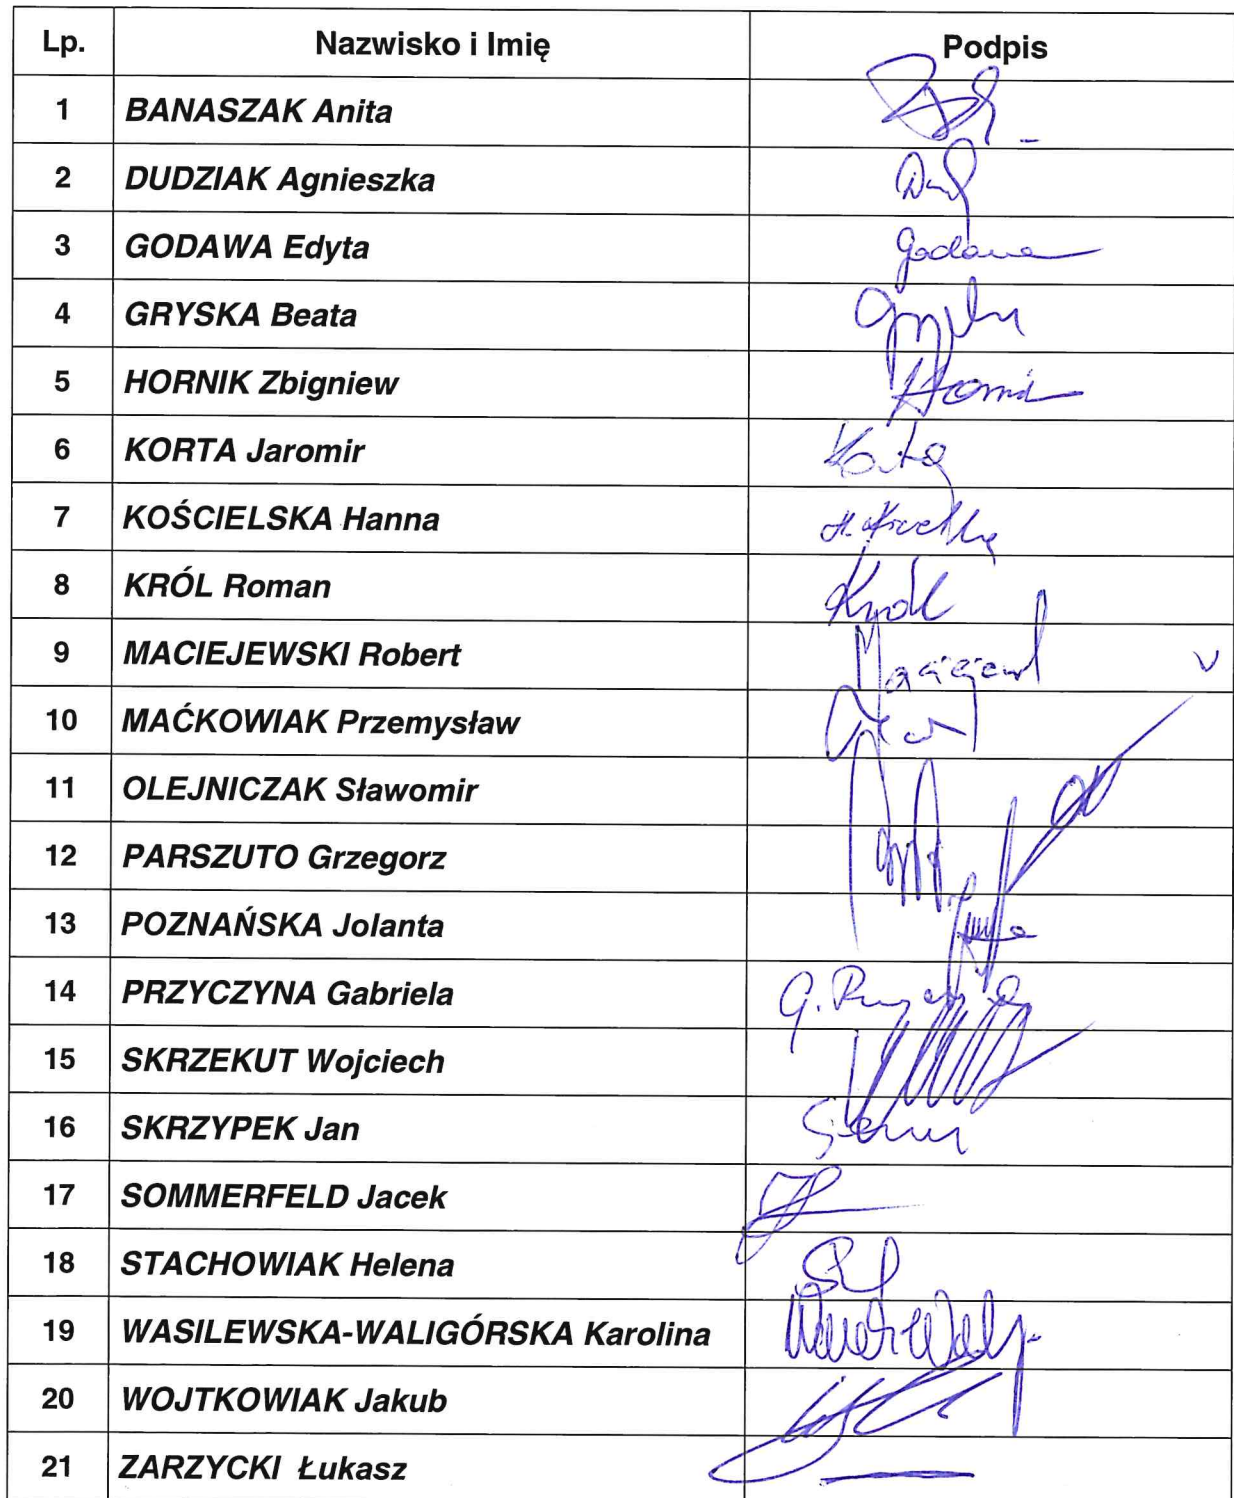 Lp. Nazwisko i Imię Podpis
1 BANASZAK Anita
2 DUDZIAK Agnieszka
3 GODAWA Edyta Godawa
4 GRYSKA Beata
5 HORNIK Zbigniew
6 KORTA Jaromir Korta
7 KOŚCIELSKA Hanna
8 KRÓL Roman Król
9 MACIEJEWSKI Robert v
10 MAĆKOWIAK Przemysław
11 OLEJNICZAK Sławomir
12 PARSZUTO Grzegorz
13 POZNAŃSKA Jolanta
14 PRZYCZYNA Gabriela
15 SKRZEKUT Wojciech
16 SKRZYPEK Jan
17 SOMMERFELD Jacek
18 STACHOWIAK Helena
19 WASILEWSKA-WALIGÓRSKA Karolina
20 WOJTKOWIAK Jakub
21 ZARZYCKI Łukasz